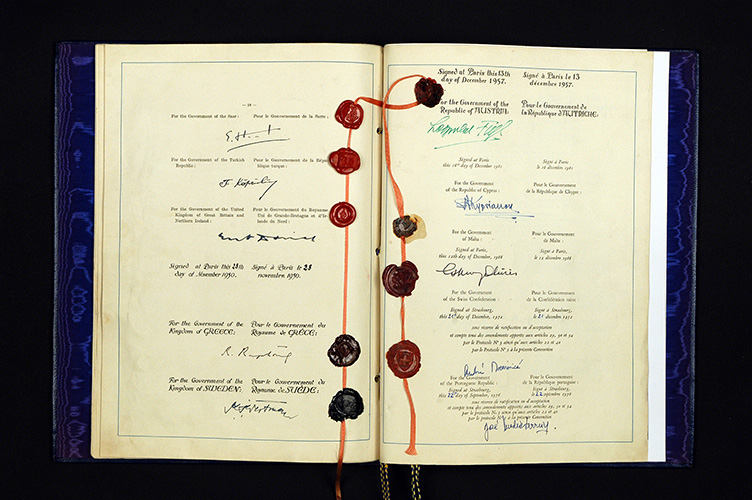 — 18 —
For the Government of the Saar : Pour le Gouvernement de la Sarre :
For the Government of the Turkish Republic : Pour le Gouvernement de la République turque :
For the Government of the United Kingdom of Great Britain and Northern Ireland : Pour le Gouvernement du Royaume Uni de Grande-Bretagne et d'Irlande du Nord :
Signed at Paris this 28th day of November 1950. Signé à Paris le 28 novembre 1950.
For the Government of the Kingdom of GREECE: Pour le Gouvernement du Royaume de GRÈCE:
For the Government of the Kingdom of SWEDEN: Pour le Gouvernement du Royaume de SUÈDE:
Signed at Paris this 13th day of December 1957. Signé à Paris le 13 décembre 1957.
For the Government of the Republic of AUSTRIA: Pour le Gouvernement de la République D'AUTRICHE:
Leopold Figl
Signed at Paris this 16th day of December 1961 Signé à Paris le 16 décembre 1961
For the Government of the Republic of Cyprus : Pour le Gouvernement de la République de Chypre :
For the Government of Malta : Pour le Gouvernement de Malte :
Signed at Paris, this 12th day of December, 1966 Signé à Paris, le 12 décembre 1966
For the Government of the Swiss Confederation : Pour le Gouvernement de la Confédération suisse :
Signed at Strasbourg, this 21st day of December, 1972 Signé à Strasbourg, le 21 décembre 1972
sous réserve de ratification ou d'acceptation
et compte tenu des amendements apportés aux articles 29, 30 et 34
par le Protocole N° 3 ainsi qu'aux articles 22 et 40
par le Protocole N° 5 à la présente Convention
For the Government of the Portuguese Republic : Pour le Gouvernement de la République portugaise :
Signed at Strasbourg, this 22nd day of September, 1976 Signé à Strasbourg, le 22 septembre 1976
sous réserve de ratification ou d'acceptation
et compte tenu des amendements apportés aux articles 29, 30 et 34
par le Protocole N° 3 ainsi qu'aux articles 22 et 40
par le Protocole N° 5 à la présente Convention